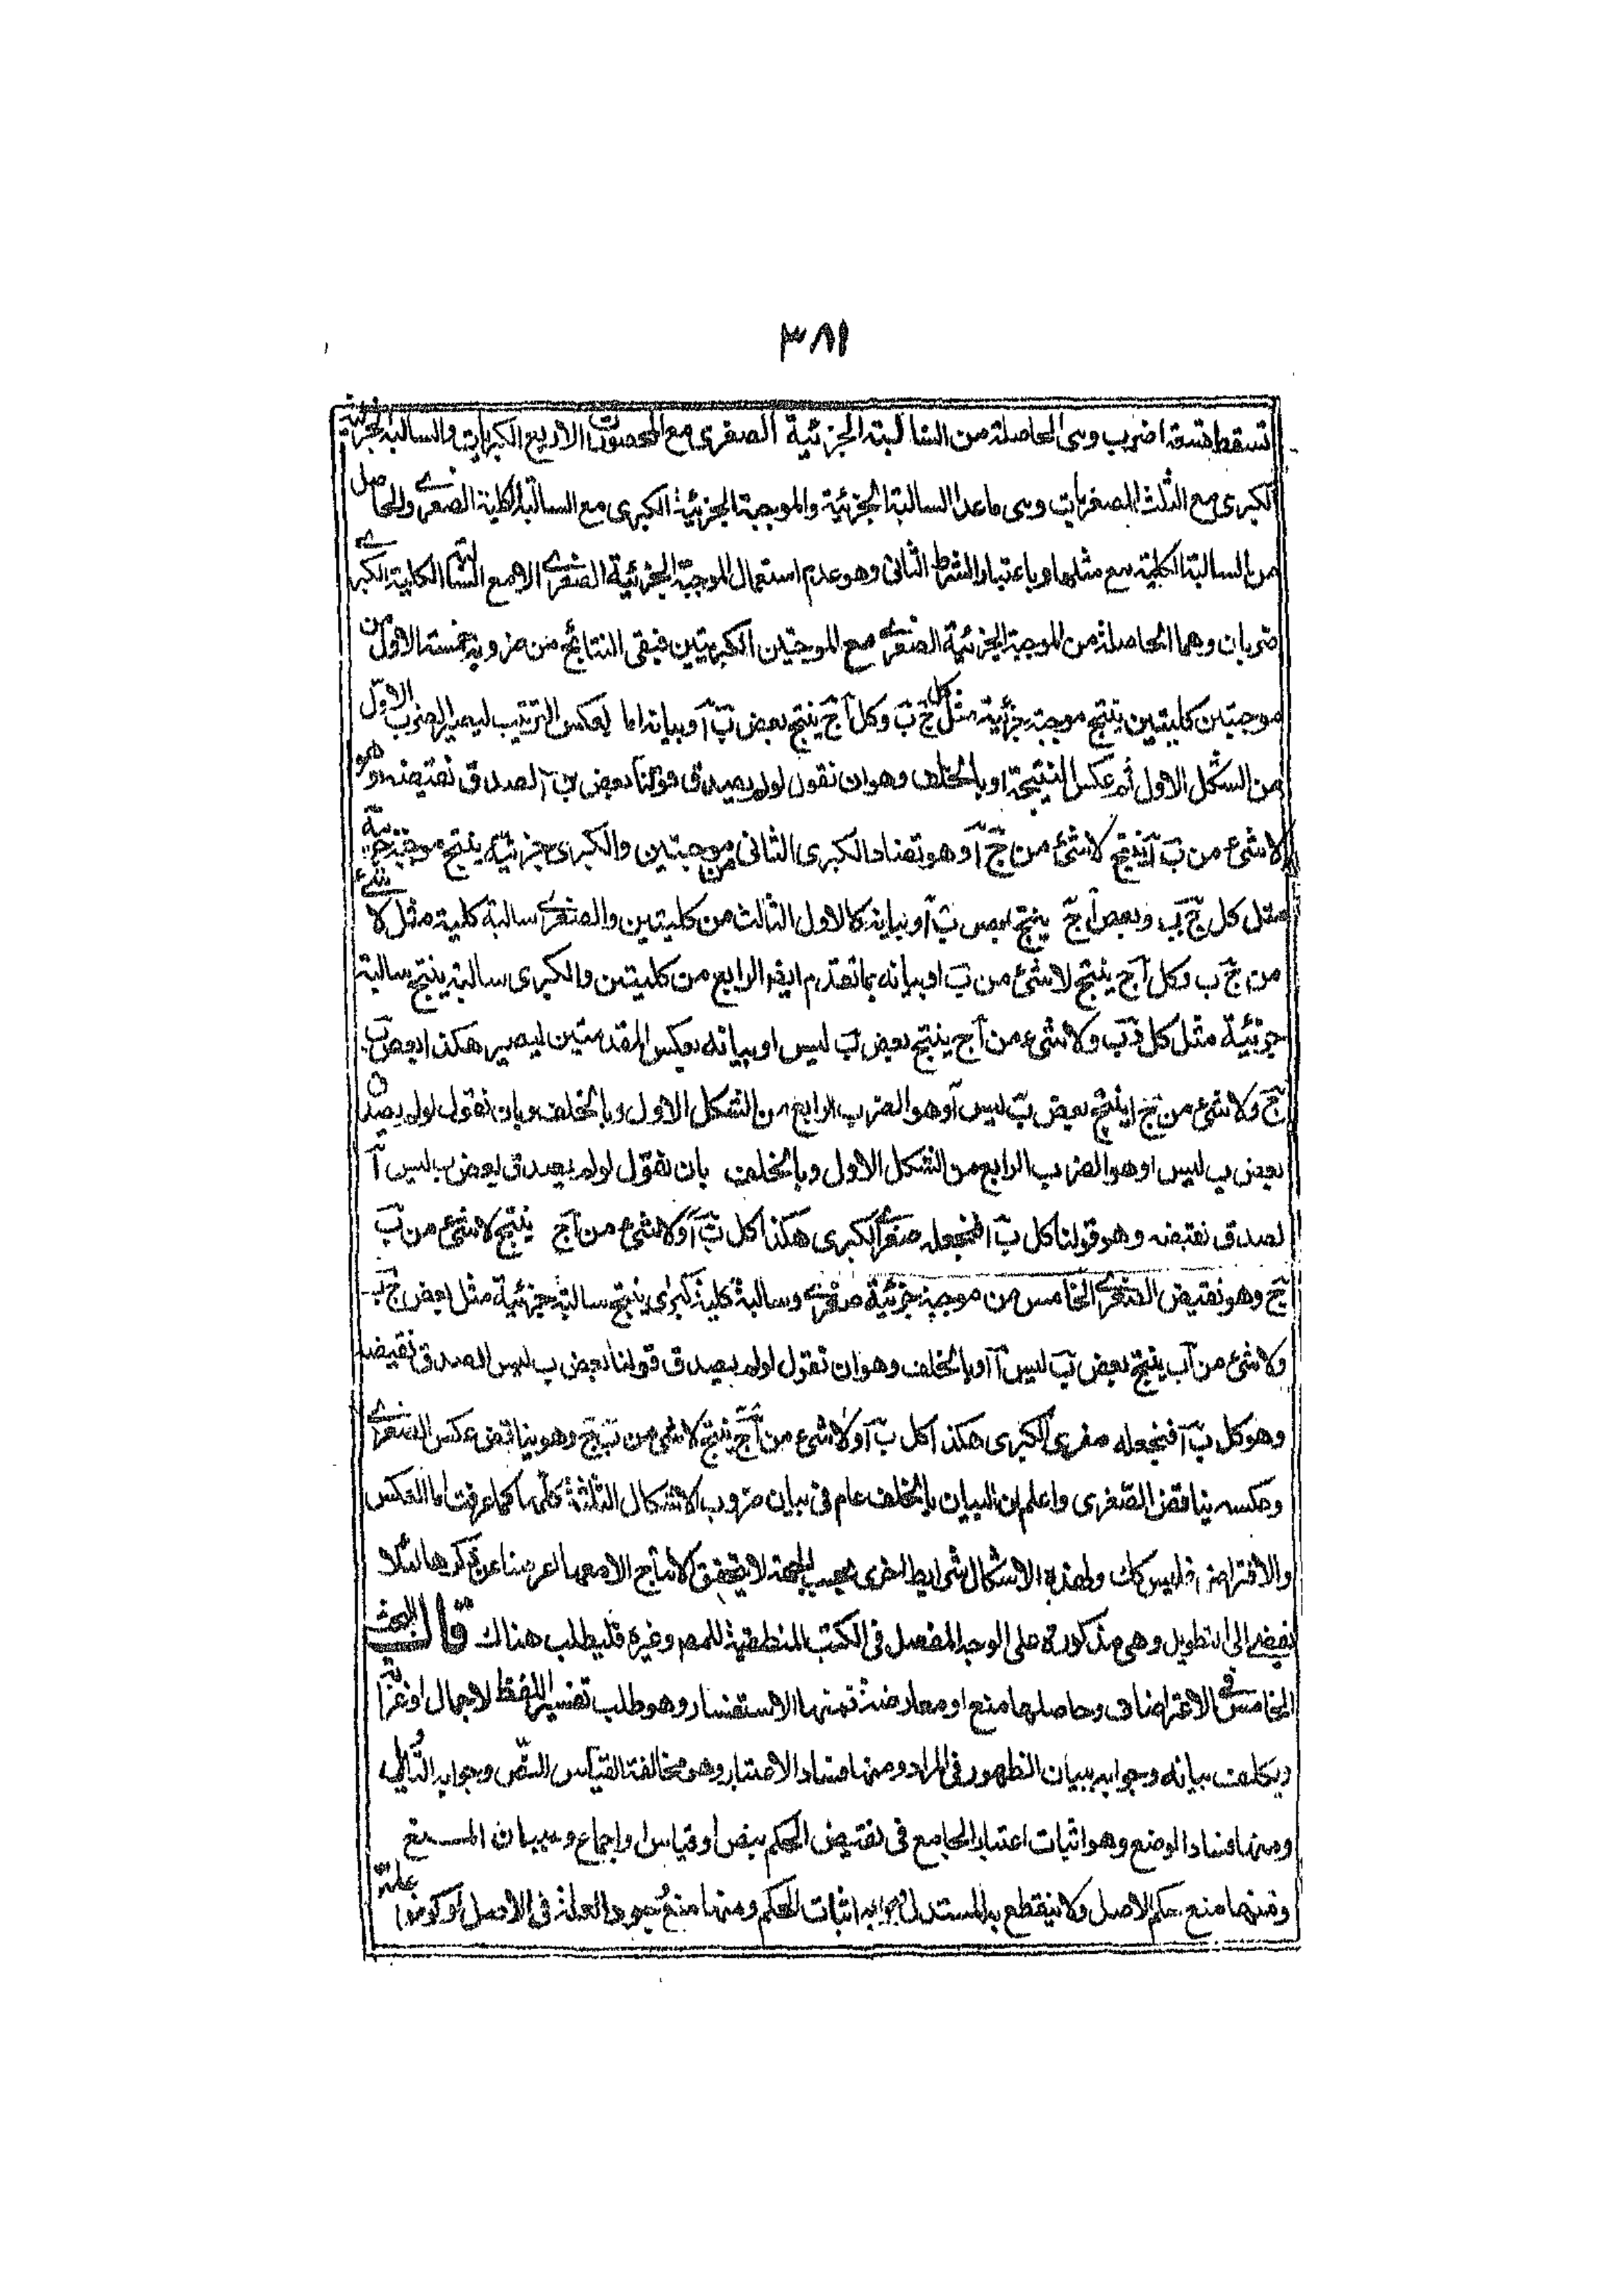 ٣٨١
تسقط تسعة اضرب وهى الحاصلة من السالبة الجزئية الصغرى مع المحصورات الاربع الكبريات والسالبة الجزئية
الكبرى مع الثلث الصغريات وهى ماعدا السالبة الجزئية والموجبة الجزئية الكبرى مع السالبة الكلية الصغرے والحاصل
من السالبة الكلية مع مثلها وباعتبار الشرط الثانى وهو عدم استعمال الموجبة الجزئية الصغرے الا مع السالبة الكلية الكبرے
ضربان وهما الحاصلة من الموجبة الجزئية الصغرے مع الموجبتين الكبريتين فبقى النتائج من ضروبه خمسة الاول من
موجبتين كليتين ينتج موجبة جزئية مثل كل جَ بَ وكل آ جَ ينتج بعض بَ آ وبيانه اما بعكس الترتيب ليصير الضرب الاوّل
من الشكل الاول ثم عكس النتيجة او بالخلف وهو ان نقول لو لم يصدق قولنا بعض بَ آ لصدق نقيضه وهو
لا شئ من بَ آ ينتج لا شئ من جَ آ وهو تضاد الكبرى الثانى من موجبتين والكبرى جزئية ينتج موجبة جزئية
مثل كل جَ بَ وبعض آ جَ ينتج بعض بَ آ وبيانه كالاول الثالث من كليتين والصغرے سالبة كلية مثل لا شئ
من جَ ب وكل آ ج ينتج لا شئ من بَ ا وبيانه بما تقدم ايضا الرابع من كليتين والكبرى سالبة ينتج سالبة
جزئية مثل كل جَ بَ ولا شئ من آ ج ينتج بعض بَ ليس ا وبيانه بعكس المقدمتين ليصير هكذا بعض بَ
جَ ولا شئ من جَ ا ينتج بعض بَ ليس آ وهو الضرب الرابع من الشكل الاول وبالخلف وبان نقول لو لم يصدق
بعض ب ليس ا وهو الضرب الرابع من الشكل الاول وبالخلف بان نقول لو لم يصدق بعض ب ليس آ
لصدق نقيضه وهو قولنا كل بَ ا فنجعله صغرے الكبرى هكذا كل بَ آ ولا شئ من آ ج ينتج لا شئ من بَ
جَ وهو نقيض الصغرے الخامس من موجبة جزئية صغرے وسالبة كلية كبرى ينتج سالبة جزئية مثل بعض جَ بَ
ولا شئ من آ ب ينتج بعض بَ ليس آ او بالخلف وهو ان نقول لو لم يصدق قولنا بعض ب ليس ا لصدق نقيضه
وهو كل بَ آ فنجعله صغرى الكبرى هكذا كل بَ آ ولا شئ من آ جَ ينتج لا شئ من بَ جَ وهو يناقض عكس الصغرے
وعكسه يناقض الصّغرى واعلم ان البيان بالخلف عام فى بيان ضروب الاشكال الثلثة كلّها كما عرفت اما العكس
والافتراض فليس كك ولهذه الاشكال شرايط اخرى بحسب الجهة لا يتحقق الانتاج الا معها اعرضنا عن ذكرها لئلا
يفضے الى التطويل وهى مذكورة على الوجه المفصل فى الكتب المنطقية للمصـ وغيره فليطلب هناك قال البحث
الخامس فى الاعتراضات وحاصلها منع او معارضة فمنها الاستفسار وهو طلب تفسير اللفظ لاجمال او غرابة
ويكلف بيانه وجوابه ببيان الظهور فى المراد ومنها فساد الاعتبار وهو مخالفة القياس النصّ وجوابه التأويل
ومنها فساد الوضع وهو اثبات اعتبار الجامع فى نقيض الحكم بنص او قياس او اجماع وببيان المـــنع
ومنها منع حكم الاصل ولا ينقطع به المستدل وجوابه اثبات الحكم ومنها منع وجود العلة فى الاصل او كونها علة